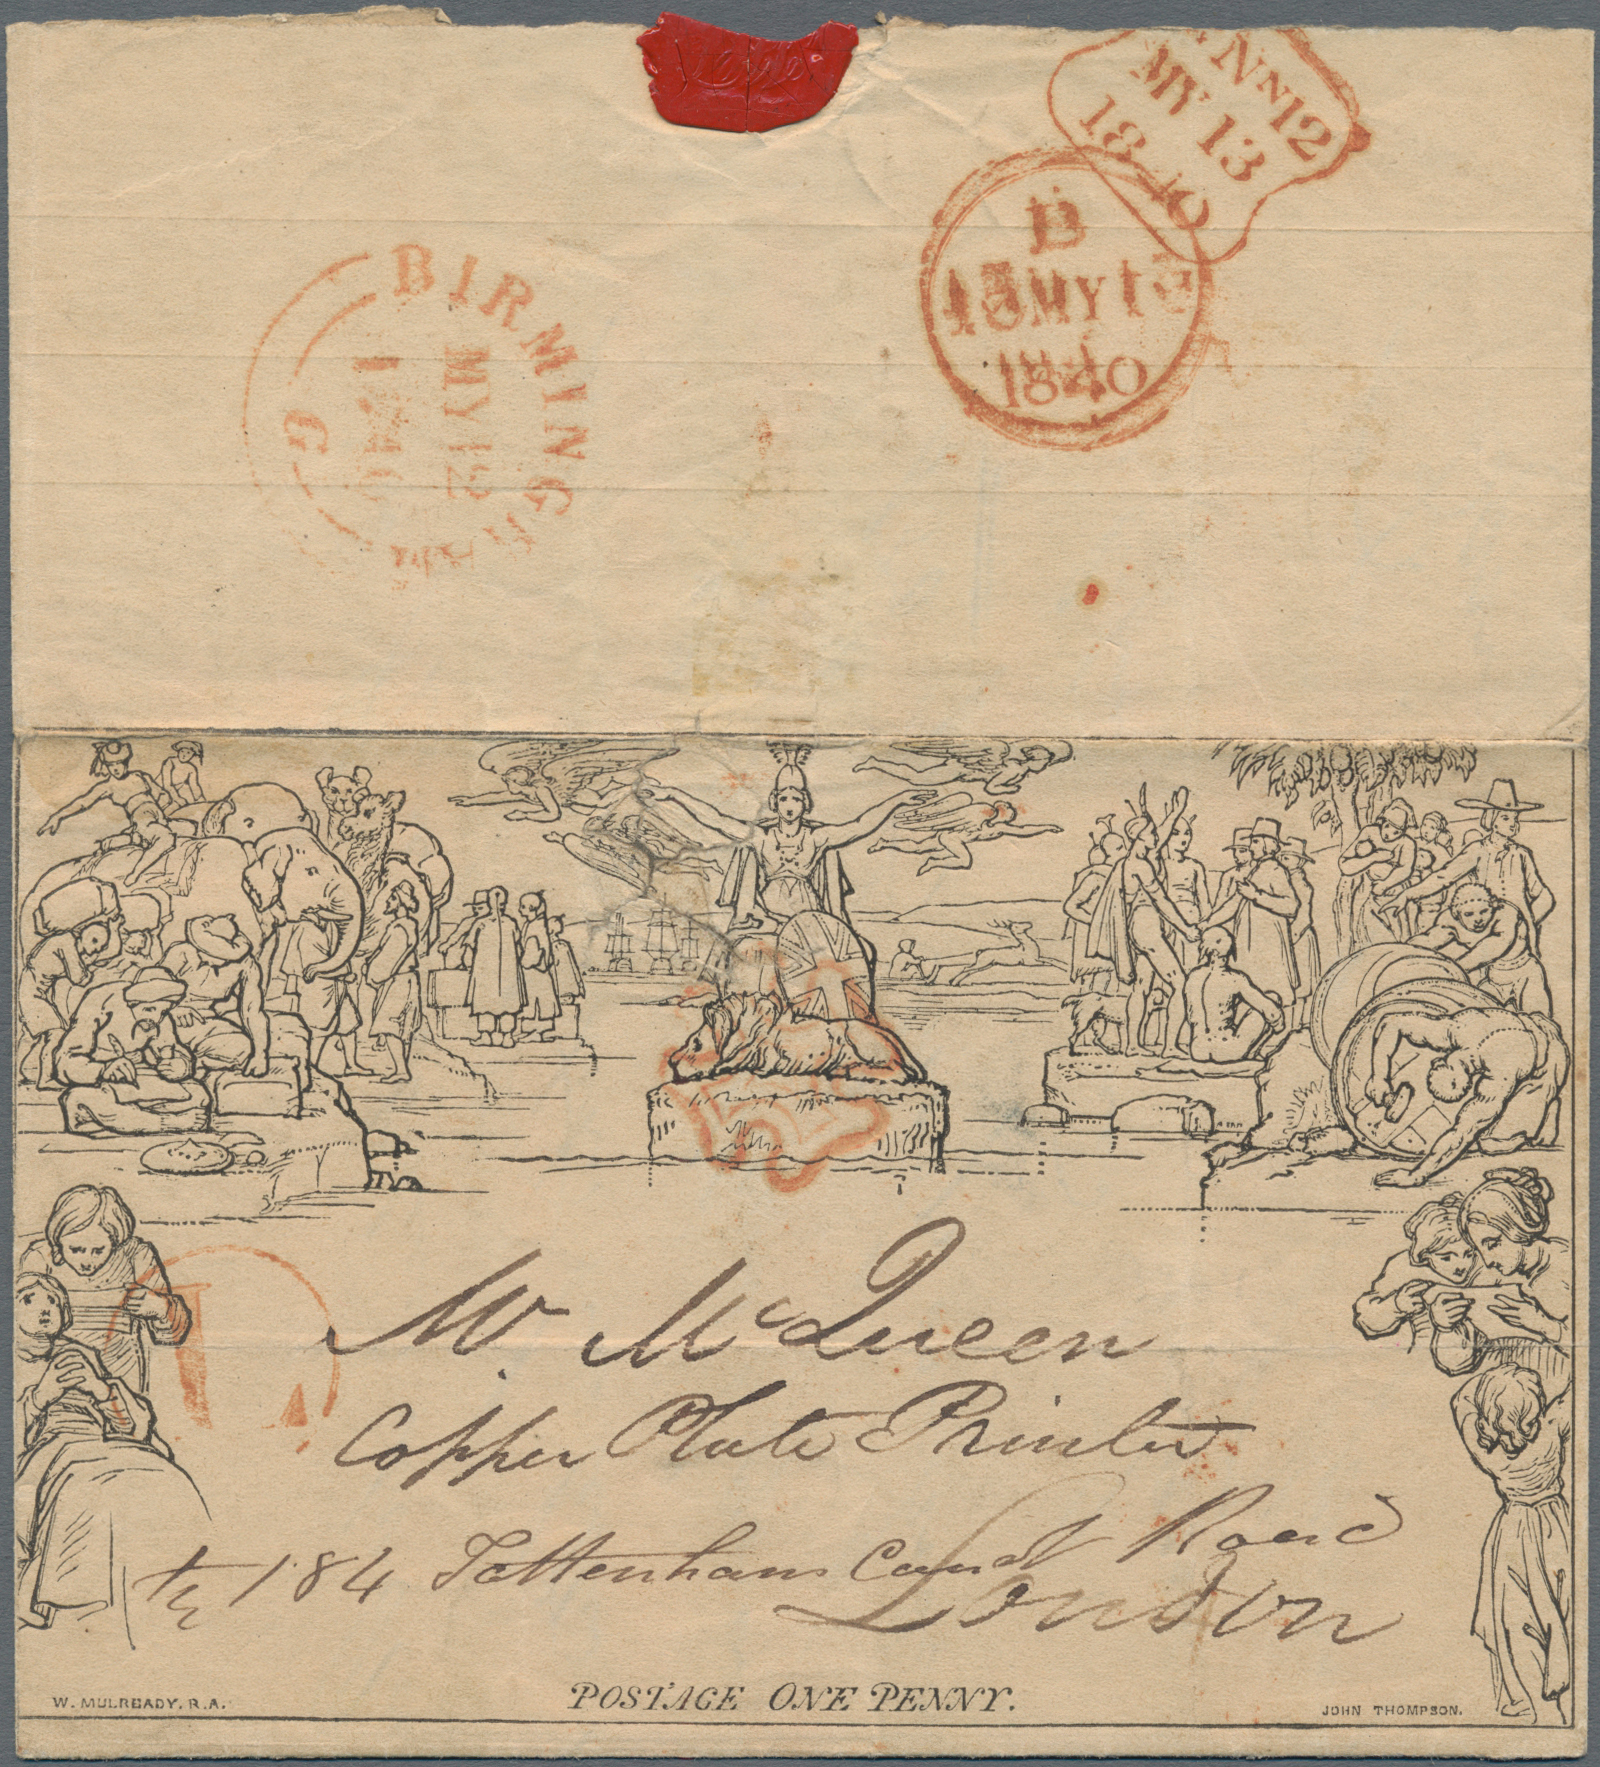 NN12
MY 13
1840
B
13 MY 13
1840
BIRMING
MY 12
1840
G
Mr. McQueen
Copper Plate Printer
184 Tottenham Court Road
London
W. MULREADY. R.A.
POSTAGE ONE PENNY.
JOHN THOMPSON.